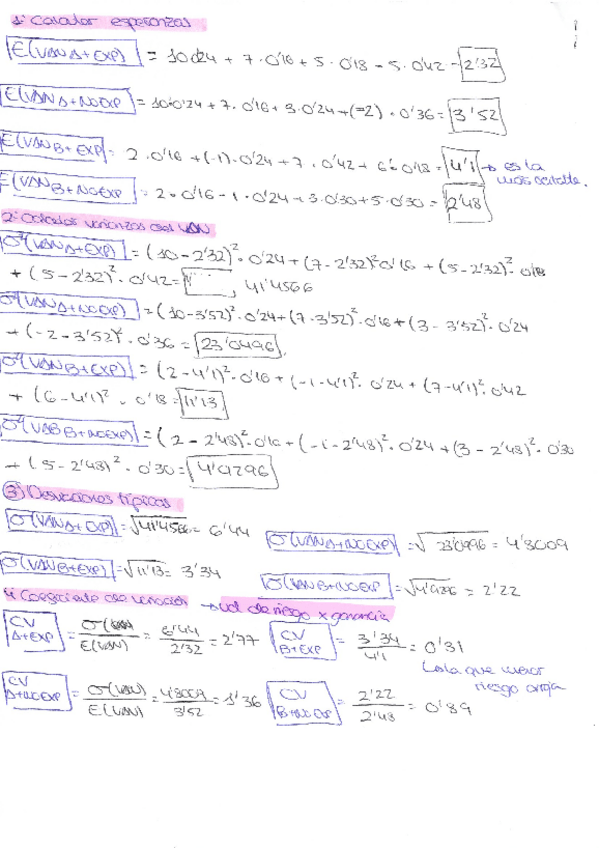 1. Calcular esperanzas
E(VAN A+EXP) = 10·0'24 + 7·0'16 + 5·0'18 - 5·0'42 = 2'32
E(VAN A+NO EXP) = 10·0'24 + 7·0'16 + 3·0'24 + (-2)·0'36 = 3'52
E(VAN B+EXP) = 2·0'16 + (-1)·0'24 + 7·0'42 + 6·0'18 = 4'1 → es la
más
E(VAN B+NO EXP) = 2·0'16 - 1·0'24 + 3·0'30 + 5·0'30 = 2'48
2. Calcular varianzas del VAN
σ²(VAN A+EXP) = (10 - 2'32)²·0'24 + (7 - 2'32)²·0'16 + (5 - 2'32)²·0'18
+ (5 - 2'32)²·0'42 = 41'4566
σ²(VAN A+NO EXP) = (10 - 3'52)²·0'24 + (7 - 3'52)²·0'16 + (3 - 3'52)²·0'24
+ (-2 - 3'52)²·0'36 = 23'0496
σ²(VAN B+EXP) = (2 - 4'1)²·0'16 + (-1 - 4'1)²·0'24 + (7 - 4'1)²·0'42
+ (6 - 4'1)²·0'18 = 11'13
σ²(VAN B+NO EXP) = (2 - 2'48)²·0'16 + (-1 - 2'48)²·0'24 + (3 - 2'48)²·0'30
+ (5 - 2'48)²·0'30 = 4'9296
③ Desviaciones típicas
σ(VAN A+EXP) = √41'4566 = 6'44 σ(VAN A+NO EXP) = √23'0996 = 4'8009
σ(VAN B+EXP) = √11'13 = 3'34 σ(VAN B+NO EXP) = √4'9296 = 2'22
4. Coeficiente de variación → ud de riesgo x ganancia
CV A+EXP = σ(VAN)/E(VAN) = 6'44/2'32 = 2'77 CV B+EXP = 3'34/4'1 = 0'81
la que menor
riesgo arroja
CV A+NO EXP = σ(VAN)/E(VAN) = 4'8009/3'52 = 1'36 CV B+NO EXP = 2'22/2'48 = 0'89